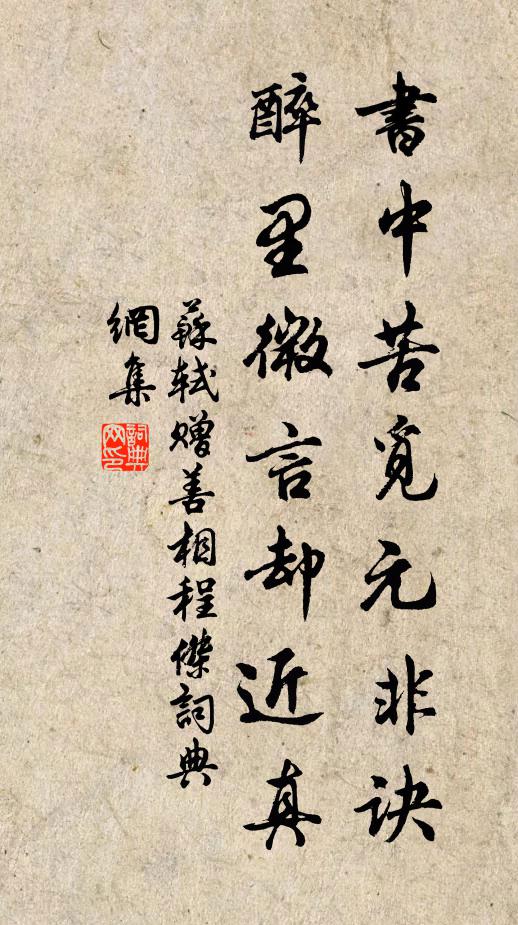 書中苦覓元非訣
醉里微言却近真
蘇軾贈善相程傑詞典
網集
詞典網印